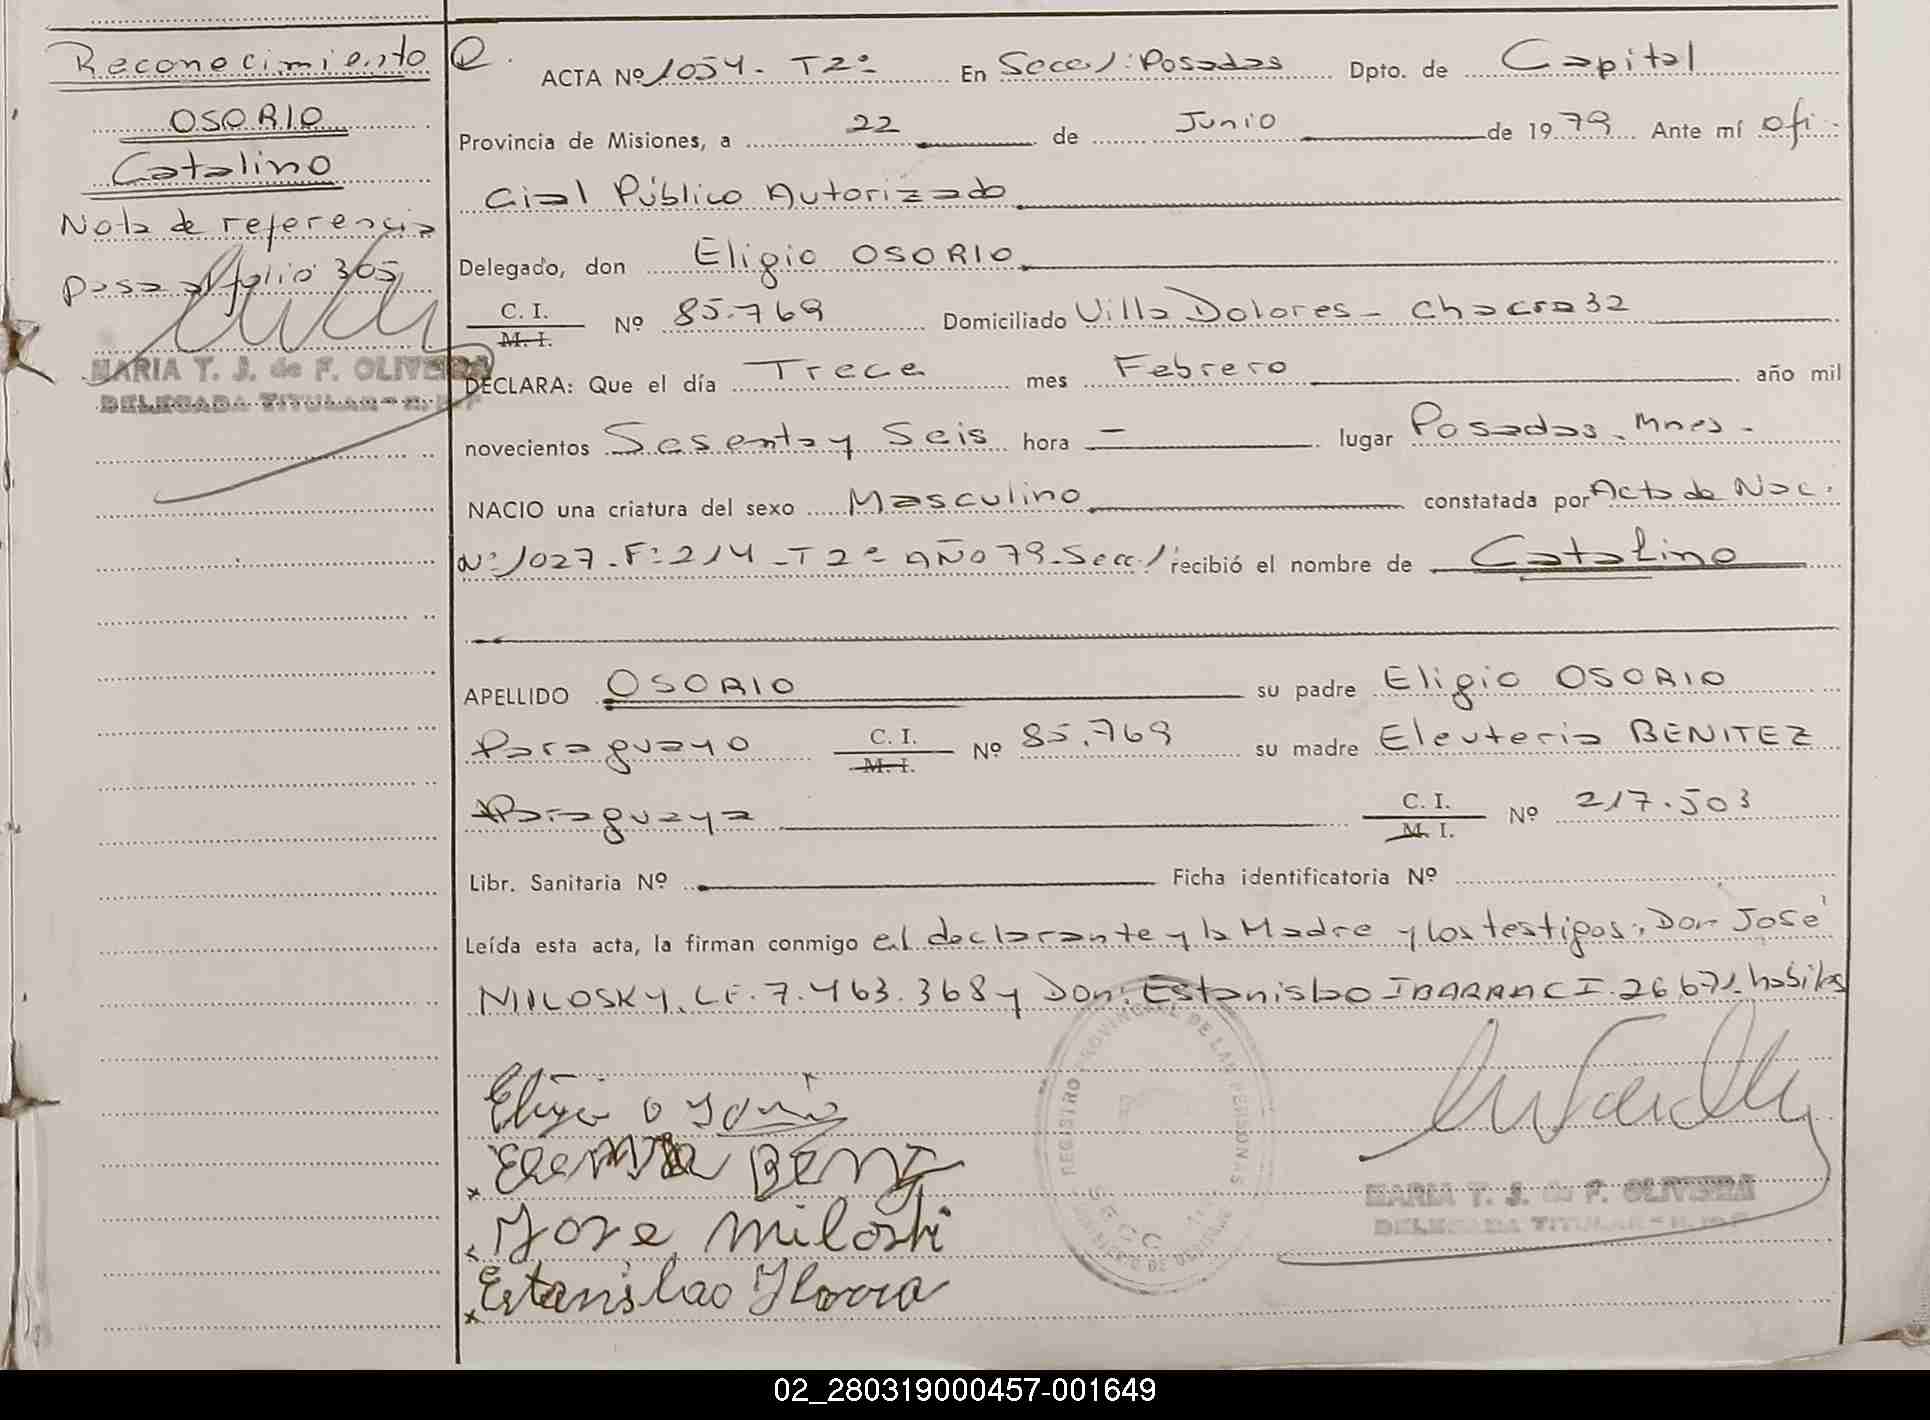 Reconocimiento
OSORIO
Catalino
Nota de referencia
pasa al folio 305
MARIA T. J. de F. OLIVEIRA
DELEGADA TITULAR - R. P. P.
ACTA Nº 1054 - T2º En Secc/: Posadas Dpto. de Capital
Provincia de Misiones, a 22 de Junio de 1979 Ante mí ofi-
cial Público Autorizado
Delegado, don Eligio OSORIO
C. I.
M. I. Nº 85.769 Domiciliado Villa Dolores - chacra 32
DECLARA: Que el día Trece mes Febrero año mil
novecientos Sesenta y Seis hora — lugar Posadas. Mnes-
NACIO una criatura del sexo Masculino constatada por Acta de Nac.
Nº 1027-Fº 214-T2º AÑO 79-Secc/ recibió el nombre de Catalino
APELLIDO OSORIO su padre Eligio OSORIO
Paraguayo C. I.
M. I. Nº 85.769 su madre Eleuteria BENITEZ
Paraguaya C. I.
M. I. Nº 217.503
Libr. Sanitaria Nº Ficha identificatoria Nº
Leída esta acta, la firman conmigo el declarante y la Madre y los testigos, Don José
MILOSKY, LE. 7.463.368 y Don: Estanislao IBARRA CI. 26671 habiles
REGISTRO PROVINCIAL DE LAS PERSONAS
SECC
MINISTERIO DE GOBIERNO
Eligio Osorio
Jose Miloski
Estanislao Ibarra
MARIA T. J. de F. OLIVEIRA
DELEGADA TITULAR - R. P. P.
02_280319000457-001649